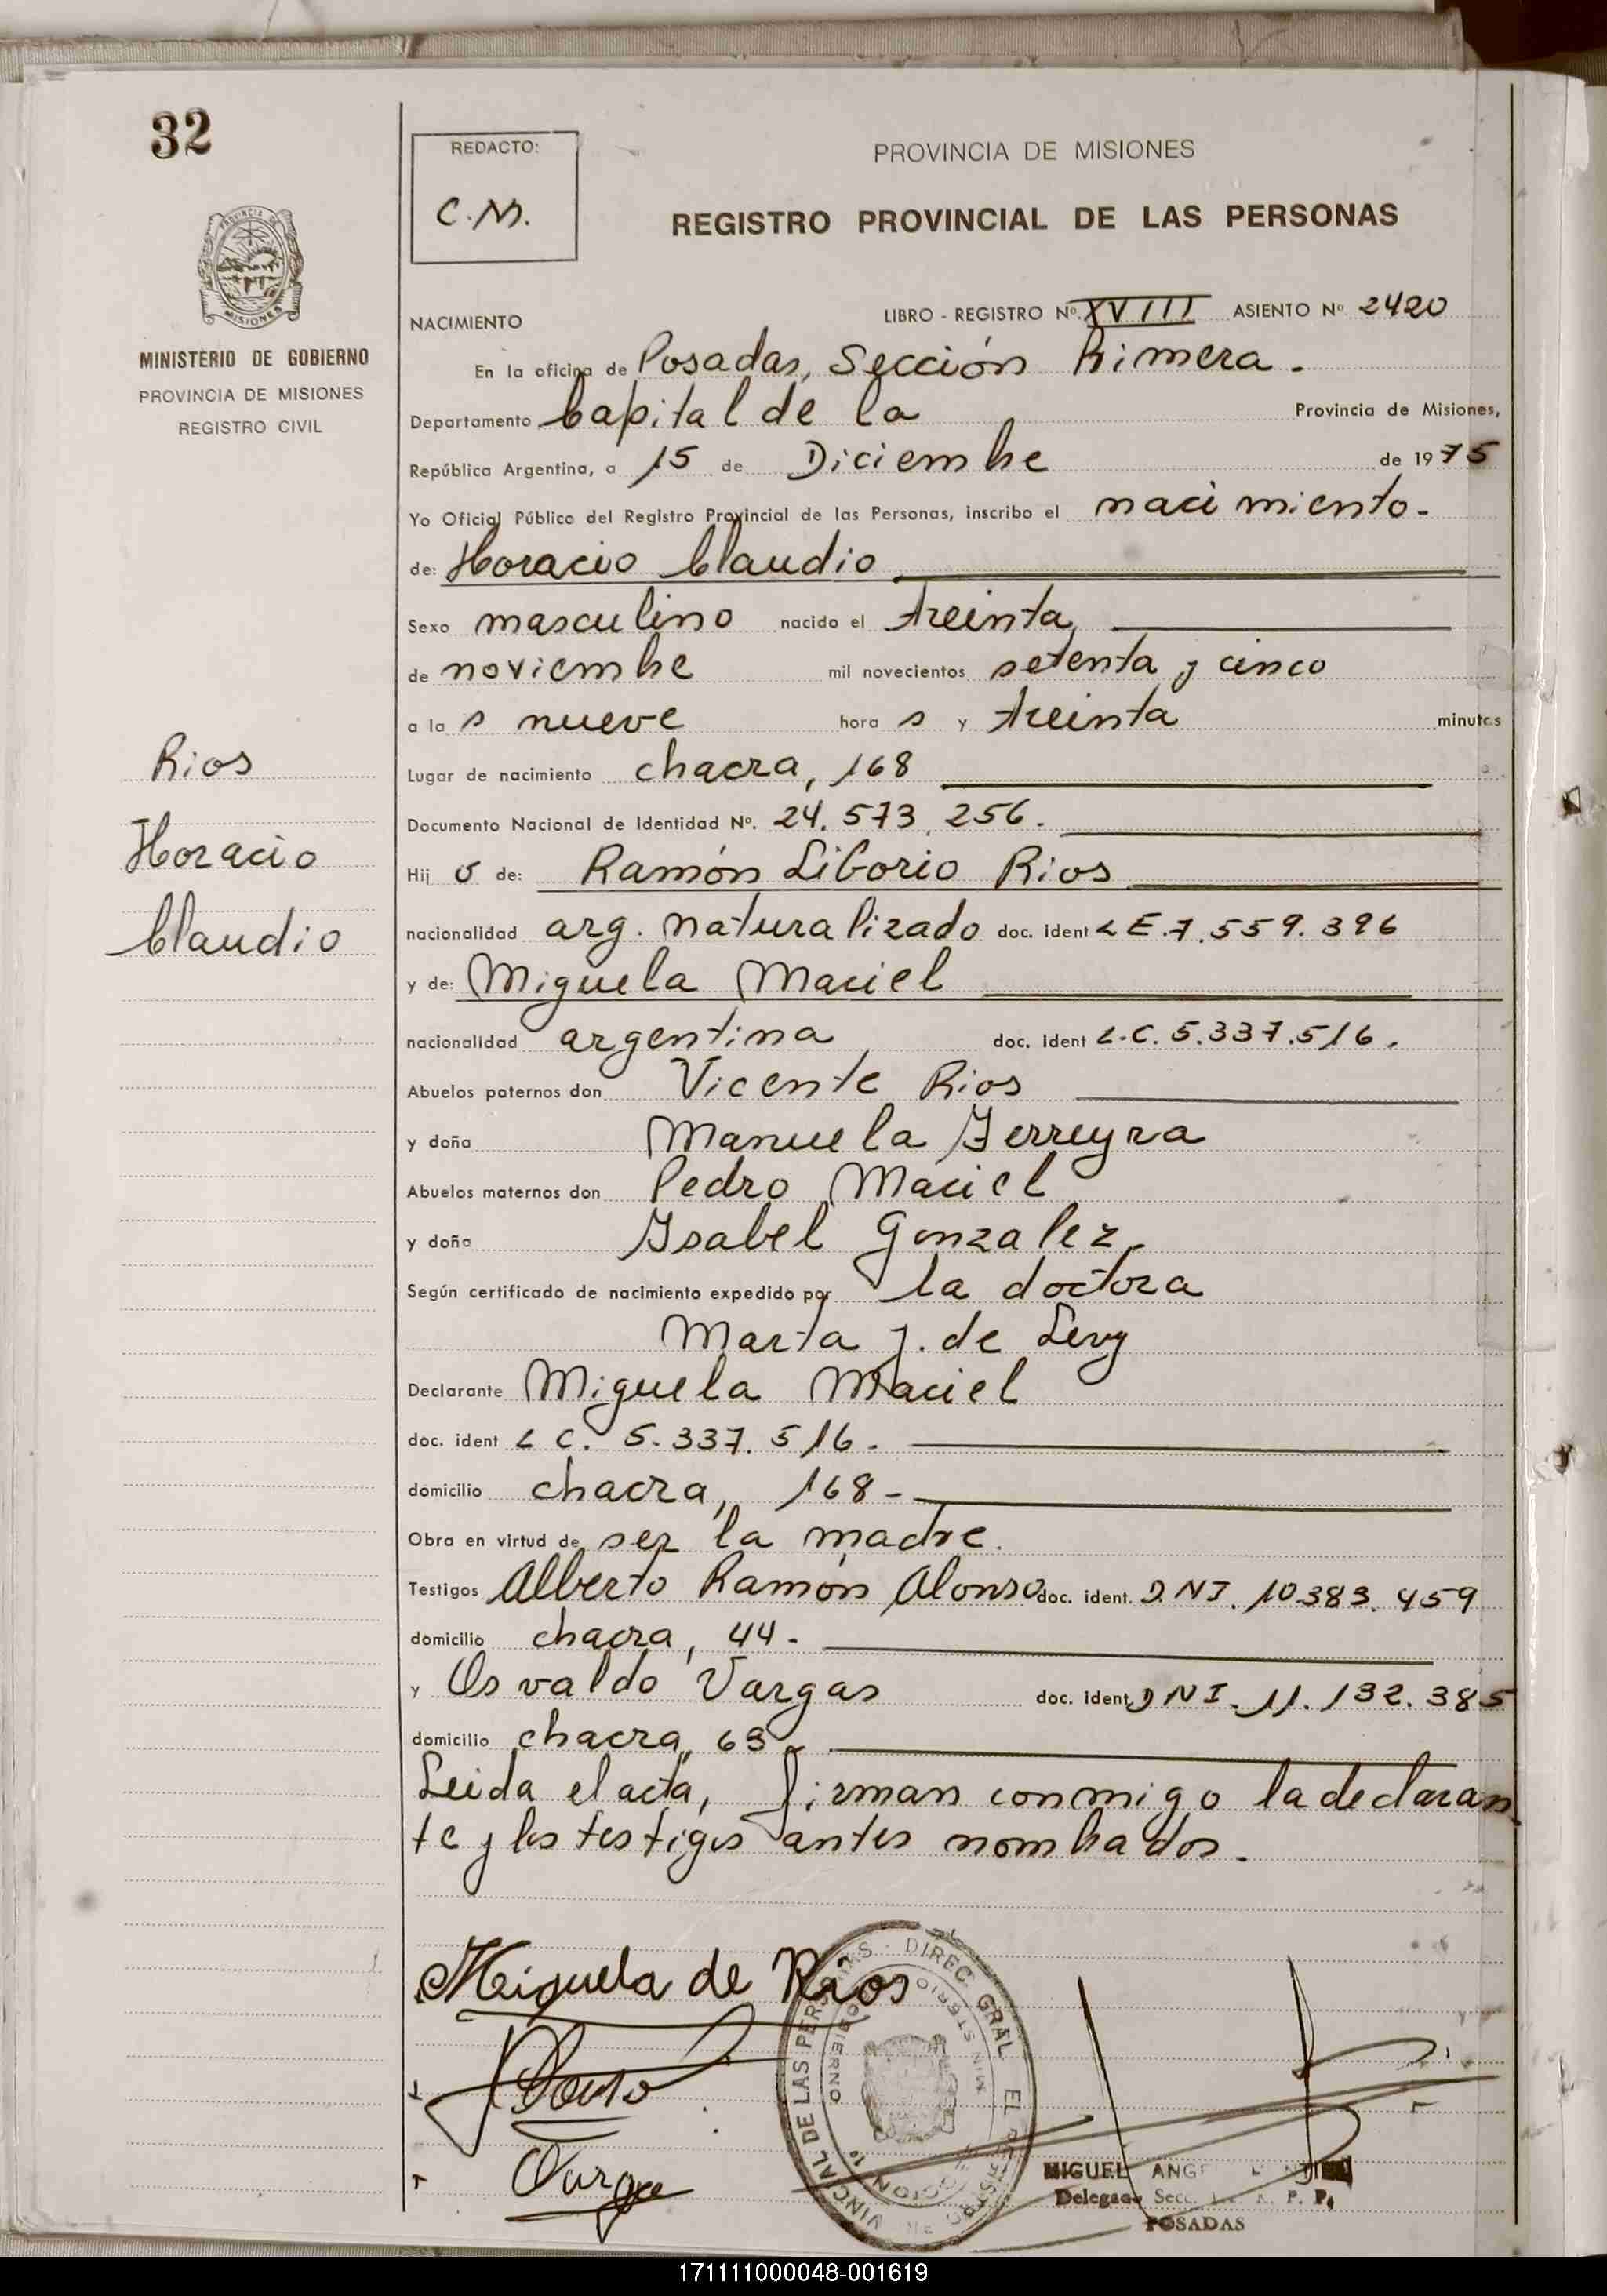 32
REDACTO:
C.M.
PROVINCIA DE MISIONES
REGISTRO PROVINCIAL DE LAS PERSONAS
MISIONES
MINISTERIO DE GOBIERNO
PROVINCIA DE MISIONES
REGISTRO CIVIL
NACIMIENTO
LIBRO - REGISTRO Nº. XVIII ASIENTO Nº 2420
En la oficina de Posadas, Sección Primera.
Departamento Capital de la Provincia de Misiones,
República Argentina, a 15 de Diciembre de 1975
Yo Oficial Público del Registro Provincial de las Personas, inscribo el nacimiento.
de: Horacio Claudio
Sexo masculino nacido el treinta,
de noviembre mil novecientos setenta y cinco
a la s nueve hora s y treinta minutos
Lugar de nacimiento chacra, 168
Documento Nacional de Identidad Nº. 24.573.256.
Hij o de: Ramón Liborio Rios
nacionalidad arg. naturalizado doc. ident LE.7.559.396
y de: Miguela Maciel
nacionalidad argentina doc. ident L.C. 5.337.516.
Abuelos paternos don Vicente Rios
y doña Manuela Ferreyra
Abuelos maternos don Pedro Maciel
y doña Isabel Gonzalez.
Según certificado de nacimiento expedido por la doctora
Marta J. de Levy
Declarante Miguela Maciel
doc. ident L C. 5.337.516.
domicilio chacra, 168-
Obra en virtud de ser la madre.
Testigos Alberto Ramón Alonso doc. ident. D.N.I. 10.383.459
domicilio chacra, 44-
y Osvaldo Vargas doc. ident DNI. 11.132.385
domicilio chacra, 63-
Leida el acta, firman conmigo la declaran
te y los testigos antes nombrados.
Rios
Horacio
Claudio
Miguela de Rios
DIREC. GRAL
DE LAS PERSONAS
MIGUEL
Delegado Secc. P. P.
POSADAS
171111000048-001619